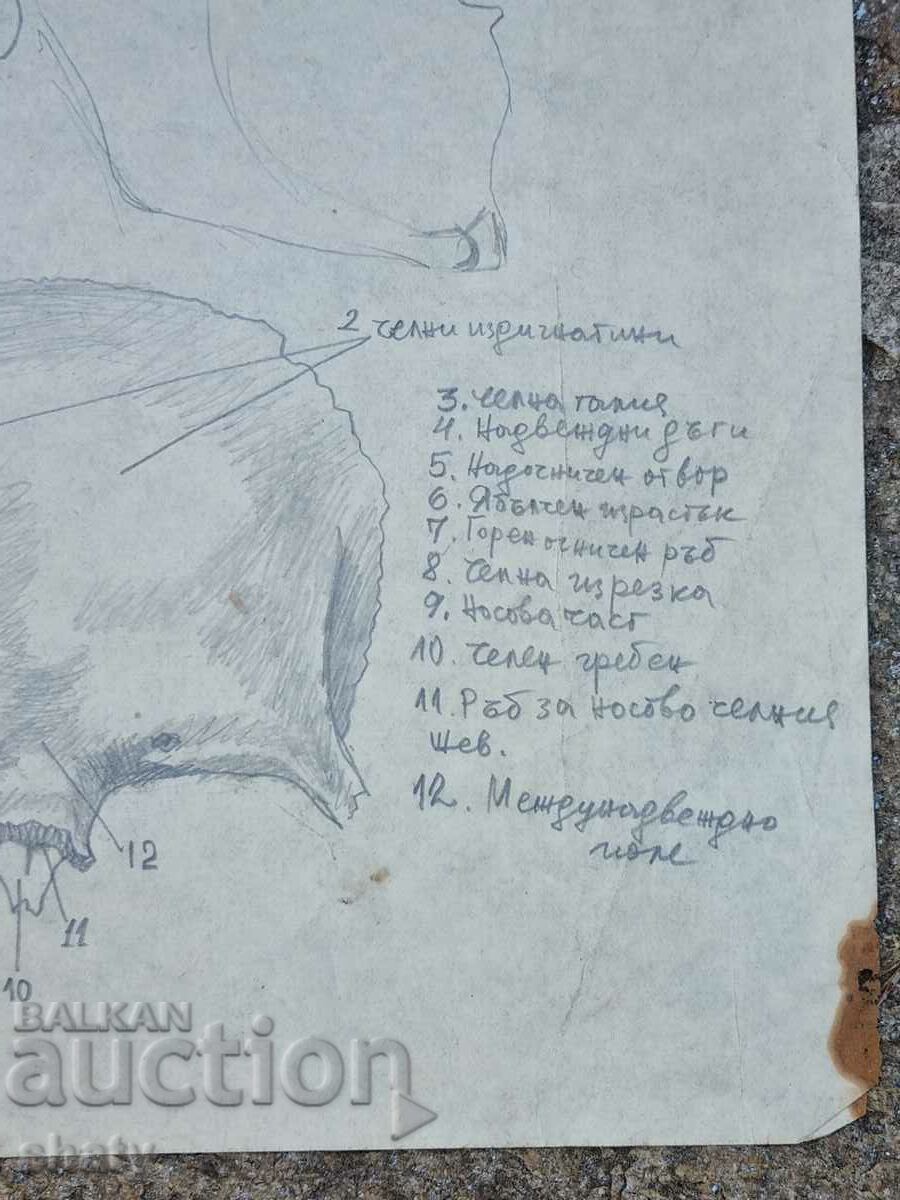 2 челни издигнатини
3. челна талия
4. Надвеждни дъги
5. Надочничен отвор
6. Ябълчен израстък
7. Горен очничен ръб
8. Челна изрезка
9. Носова част
10. Челен гребен
11. Ръб за носово челния
шев.
12. Междунадвеждно
поле
12
11
10
BALKAN
auction
shatv